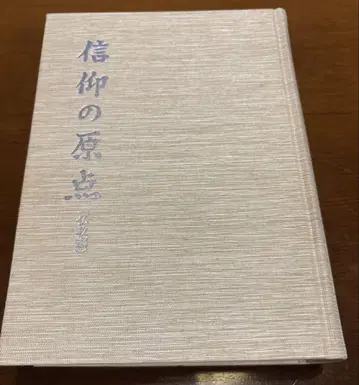 信仰の原点